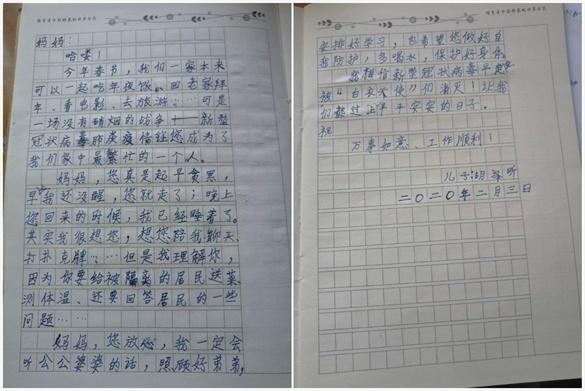 妈妈：
哈喽！
今年春节，我们一家本来
可以一起吃年夜饭。回老家拜
年、看电影、去放游……可是
一场没有硝烟的战争——新型
冠状病毒肺炎疫情让您成为了
我们家中最繁忙的一个人。
妈妈，您真是起早贪黑，
早我还没醒，您就走了；晚上
您回来的时候，我已经睡着了。
其实我很想您，想您陪我聊天、
打扑克牌……但是我理解你，
因为你要给被隔离的居民送菜、
测体温、还要回答居民的一些
问题……
妈妈，您放心，我一定会
听公公婆婆的话，照顾好弟弟，
安排好学习，也希望您做好自
我防护，多喝水，保护好身体。
我相信新型冠状病毒早晚
被“白衣天使”们消灭！让我
们都过上平平安安的日子。
祝
万事如意、工作顺利！
儿子湖
听
二〇二〇年二月三日